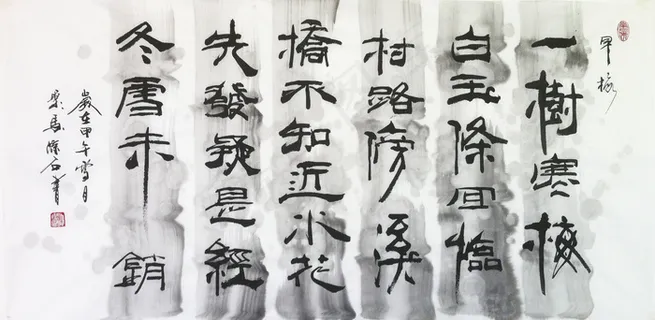 早梅
一樹寒梅
白玉條回臨
村路傍溪
橋不知近水花
先發疑是經
冬雪未銷
歲在甲午雪月